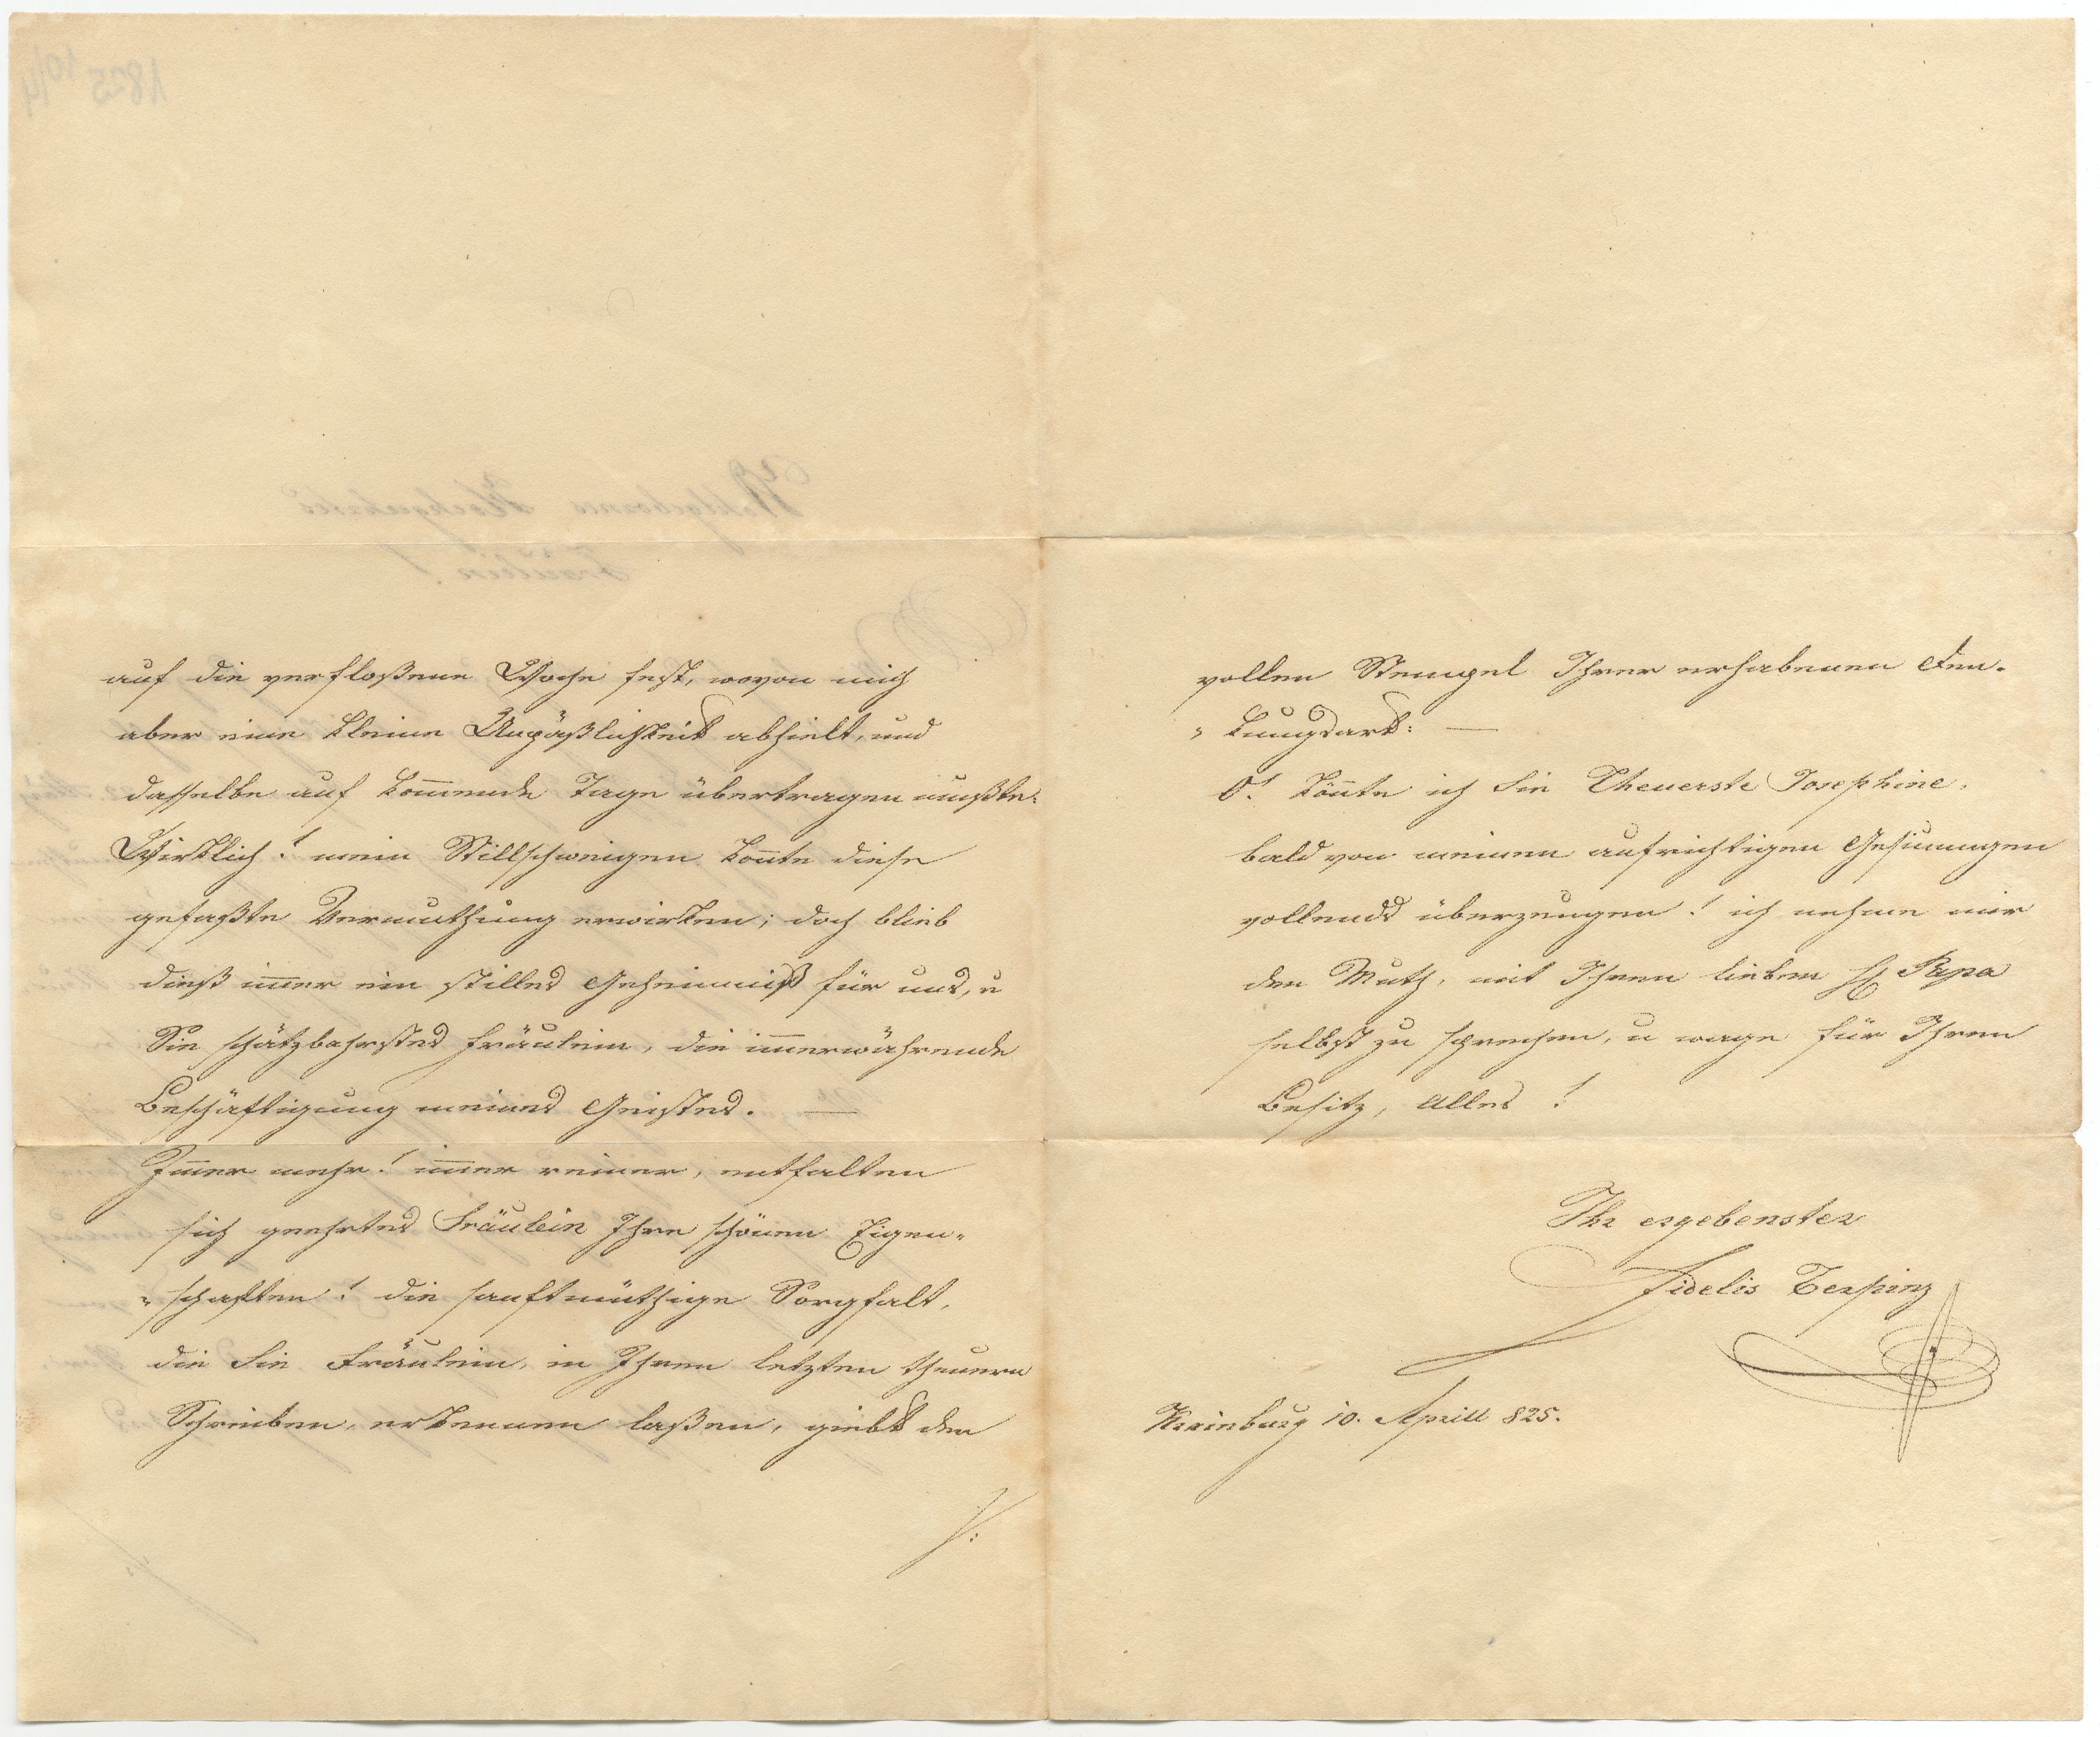 auf die verfloßene Woche fest, wovon mich
aber eine kleine Unpäßlichkeit abhielt, und
dasselbe auf kom̄ende Tage übertragen mußte.
Wirklich! mein Stillschweigen kon̄te diese
gefaßte Vermuthung erwirken; doch blieb
dieß im̄er ein stilles Geheimniß für uns, u
Sie schätzbahrstes Fräulein, die im̄erwährende
Beschäftigung meines Geistes. —
Im̄er mehr! im̄er reiner, entfalten
sich geehrtes Fräulein Ihre schönen Eigen-
„schaften! die sanftmüthige Sorgfalt,
die Sie Fräulein, in Ihren letzten theuern
Schreiben, erkennen laßen, giebt den
./:
vollen Stempel Ihrer erhabenen Den-
„kungsart: —
O! kön̄te ich Sie Theuerste Josephine,
bald von meinen aufrichtigen Gesinungen
vollends überzeugen! ich nehme mir
den Muth, mit Ihren lieben H Papa
selbst zu sprechen, u wage für Ihren
Besitz, Alles!
Ihr ergebenster
Fidelis Terpinz
Krainburg 10. Aprill 825.